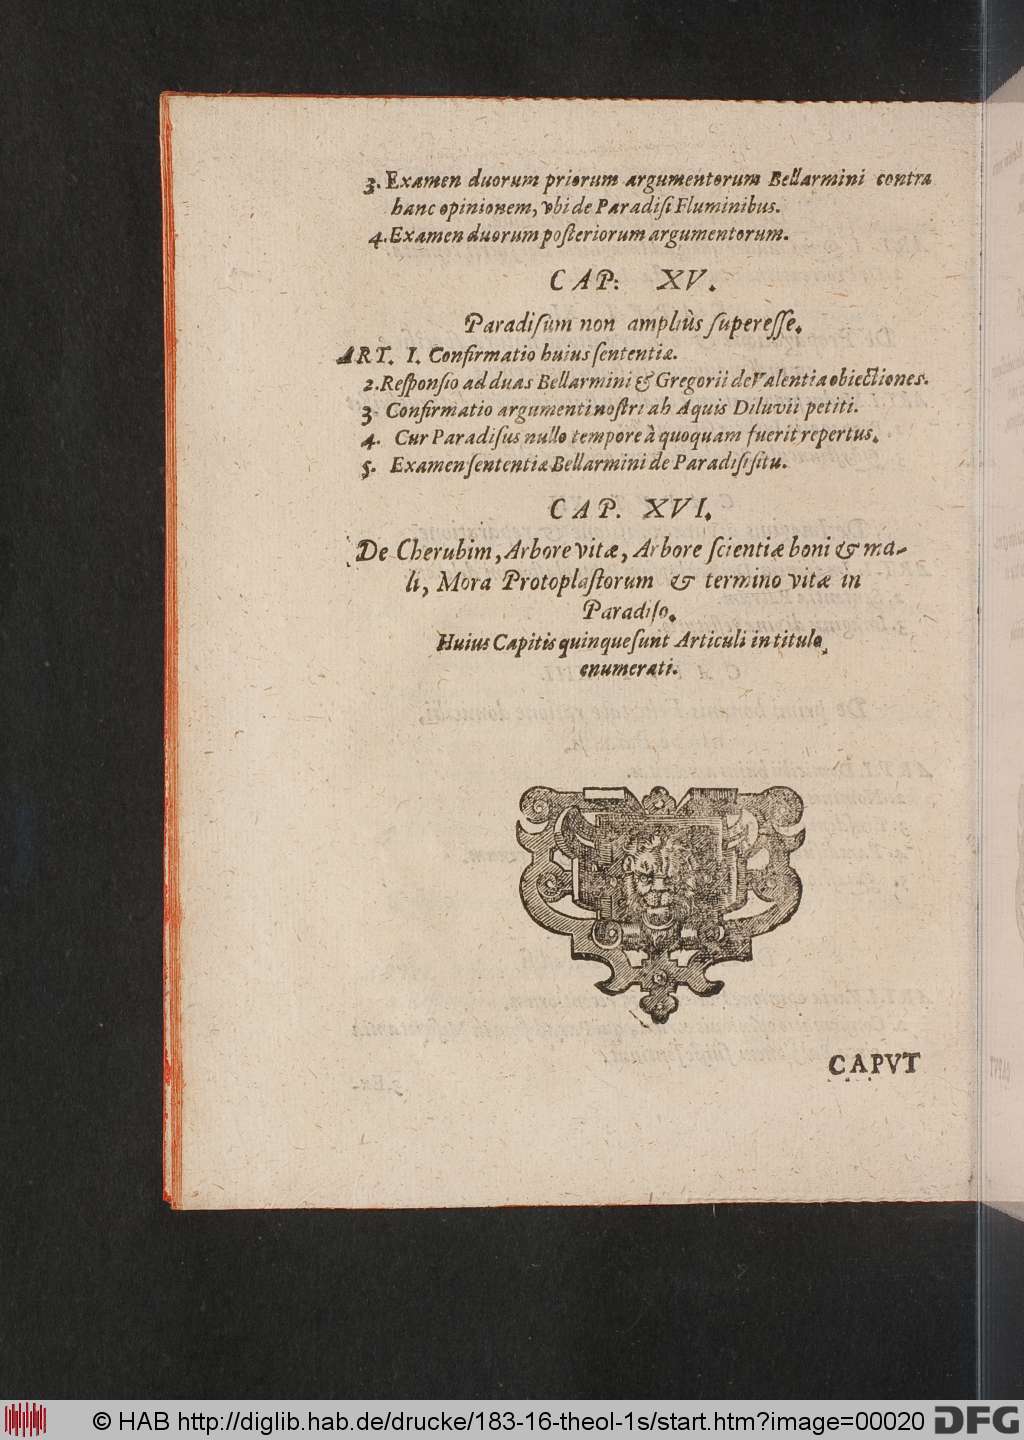 3. Examen duorum priorum argumentorum Bellarmini contra
hanc opinionem, vbi de Paradiſi Fluminibus.
4. Examen duorum poſteriorum argumentorum.
CAP: XV.
Paradiſum non ampliùs ſupereſſe.
ART. I. Confirmatio huius ſententiæ.
2. Reſponſio ad duas Bellarmini & Gregorii de Valentia obiectiones.
3 Confirmatio argumenti noſtri ab Aquis Diluvii petiti.
4. Cur Paradiſus nullo tempore à quoquam fuerit repertus.
5. Examen ſententiæ Bellarmini de Paradiſi ſitu.
CAP. XVI.
De Cherubim, Arbore vitæ, Arbore ſcientiæ boni & ma-
li, Mora Protoplaſtorum & termino vitæ in
Paradiſo.
Huius Capitis quinque ſunt Articuli in titulo
enumerati.
CAPVT
© HAB http://diglib.hab.de/drucke/183-16-theol-1s/start.htm?image=00020
DFG